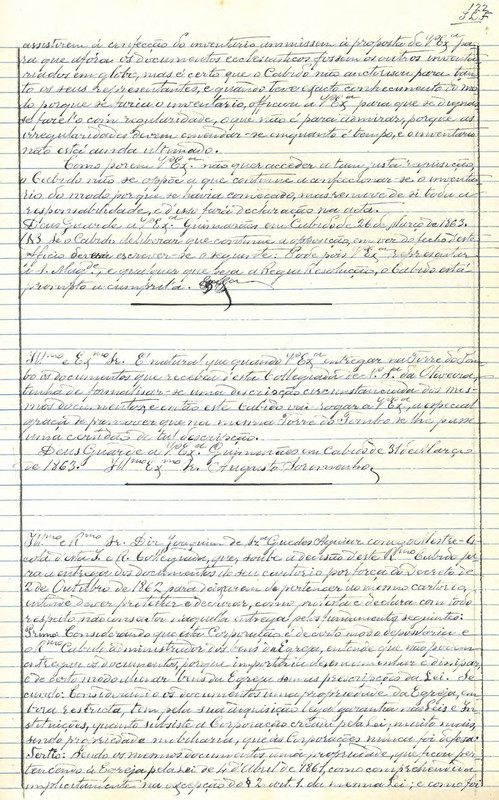 122
assistirem à confecção do inventario annuissem á proposta de V.ª Ex.ª pa-
ra que afóra os documentos ecclesiasticos fossem os outros inventa-
riados em globo, mas é certo que o Cabido não auctorisou para tan-
to os seus representantes, e quando teve exacto conhecimento do mo-
do porque se fazia o inventario, officiou a V.ª Ex.ª para que se dignas-
se fazel-o com regularidade, o que não é para admirar, porque as
irregularidades devem emendar-se emquanto é tempo, e o inventario
não está ainda ultimado.
Como porem V.ª Ex.ª não quer acceder a tam justa requisição,
o Cabido não se oppõe a que continue a confeccionar-se o inventa-
rio do modo porque se havia começado, mas remove de si toda a
responsabilidade, e d'isso fará declaração na acta.
Deus Guarde a V.ª Ex.ª Guimarães em Cabido de 26 de Março de 1863.
Se o Cabido deliberar que continue a opposição, em vez do fecho d'este
officio deverá escrever-se o seguinte: Pode pois V.ª Ex.ª representar
a S. Mag.de, e qualquer que seja a Regia Resolução, o Cabido está
prompto a cumpril-a.
Ill.mo e Ex.mo Sr. É natural que quando V.ª Ex.ª entregar na Torre do Tom-
bo os documentos que recebeu d'esta Collegiada de N.ª S.ª da Oliveira,
tenha de formalisar-se uma descripção circunstanciada dos mes-
mos documentos; e então este Cabido vai rogar a V.ª Ex.ª a especial
graça de promover que na mesma Torre do Tombo se lhe passe
uma certidão de tal descripção.
Deus Guarde a V.ª Ex.ª Guimarães em Cabido de 31 de Março
de 1863. Ill.mo Ex.mo Sr. Augusto Soromenho.
Ill.mo e R.mo Sr. Diz Joaquim de Guedes Aguiar conego Mestre-Es-
cola d'esta I. e R. Collegiada, que, sobre a decisão d'este R.mo Cabido pa-
ra a entrega dos documentos do seu cartorio por força do Decreto de
2 de Outubro de 1862 para deixarem de pertencer ao mesmo cartorio,
entende dever protestar e declarar, como protesta e declara com todo
respeito não consentir n'aquella entrega pelos fundamentos seguintes:
Primo: Considerando que esta Corporação é de certo modo depositaria e
o R.mo Cabido administrador dos bens da Egreja, entende que não podem
entregar os documentos, porque importaria desmembrar e dissipar,
e de certo modo alienar bens da Egreja sem as prescripções da Lei. Se-
cundo: Considerando os documentos uma propriedade da Egreja, em-
bora restricta, tem pela sua acquisição legal garantia nas Leis e In-
stituições, quanto subsiste a Corporação creada pela Lei, muito mais
sendo propriedade mobiliaria, que ás Corporações nunca foi defesa.
Tertio: Sendo os mesmos documentos uma propriedade, que ficou per-
tencendo á Egreja pela Lei de 4 d'Abril de 1861, como comprehendida
implicitamente na excepção do § 2 art. 1 da mesma Lei; e como foi